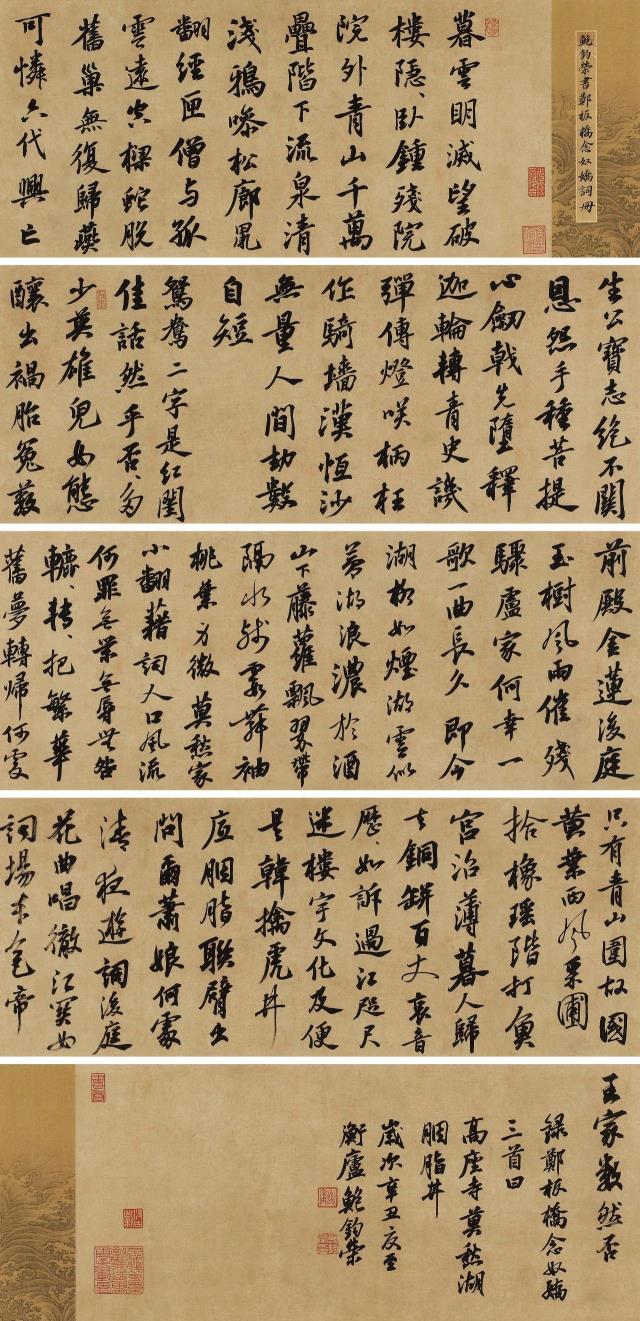 鮑鈞榮書鄭板橋念奴嬌詞冊
暮雲明滅望破
樓隱、臥鍾殘院
院外青山千萬
疊階下流泉清
淺鴉噪松廊鼠
翻經匣僧与孤
雲遠空樑蛇脫
舊巢無復歸燕
可憐六代興亡
生公寶志絶不關
恩怨手種菩提
心劒戟先墮釋
迦輪轉青史譏
彈傳燈咲柄枉
作騎墻漢恆沙
無量人間劫數
自短
鴛鴦二字是紅閨
佳話然乎否、多
少英雄兒女態
釀出禍胎冤藪
前殿金蓮後庭
玉樹風雨催殘
驟盧家何幸一
歌一曲長久即今
湖柳如煙湖雲似
夢湖浪濃於酒
山下藤蘿飄翠帶
隔水殘霞舞袖
桃葉身微莫愁家
小翻藉詞人口風流
何罪無榮無辱無咎
轆、轉、把繁華
舊夢轉歸何處
只有青山圍故國
黄葉西風菜圃
拾橡瑤階打魚
宮沼薄暮人歸
去銅缾百丈哀音
歷、如訴過江咫尺
迷樓宇文化及便
是韓擒虎井
底胭脂聯臂出
問爾蕭娘何處
清夜遊詞後庭
花曲唱徹江關女
詞場本色帝
王家數然否
録鄭板橋念奴嬌
三首曰
高座寺莫愁湖
胭脂井
歲次辛丑夏至
衡廬鮑鈞榮